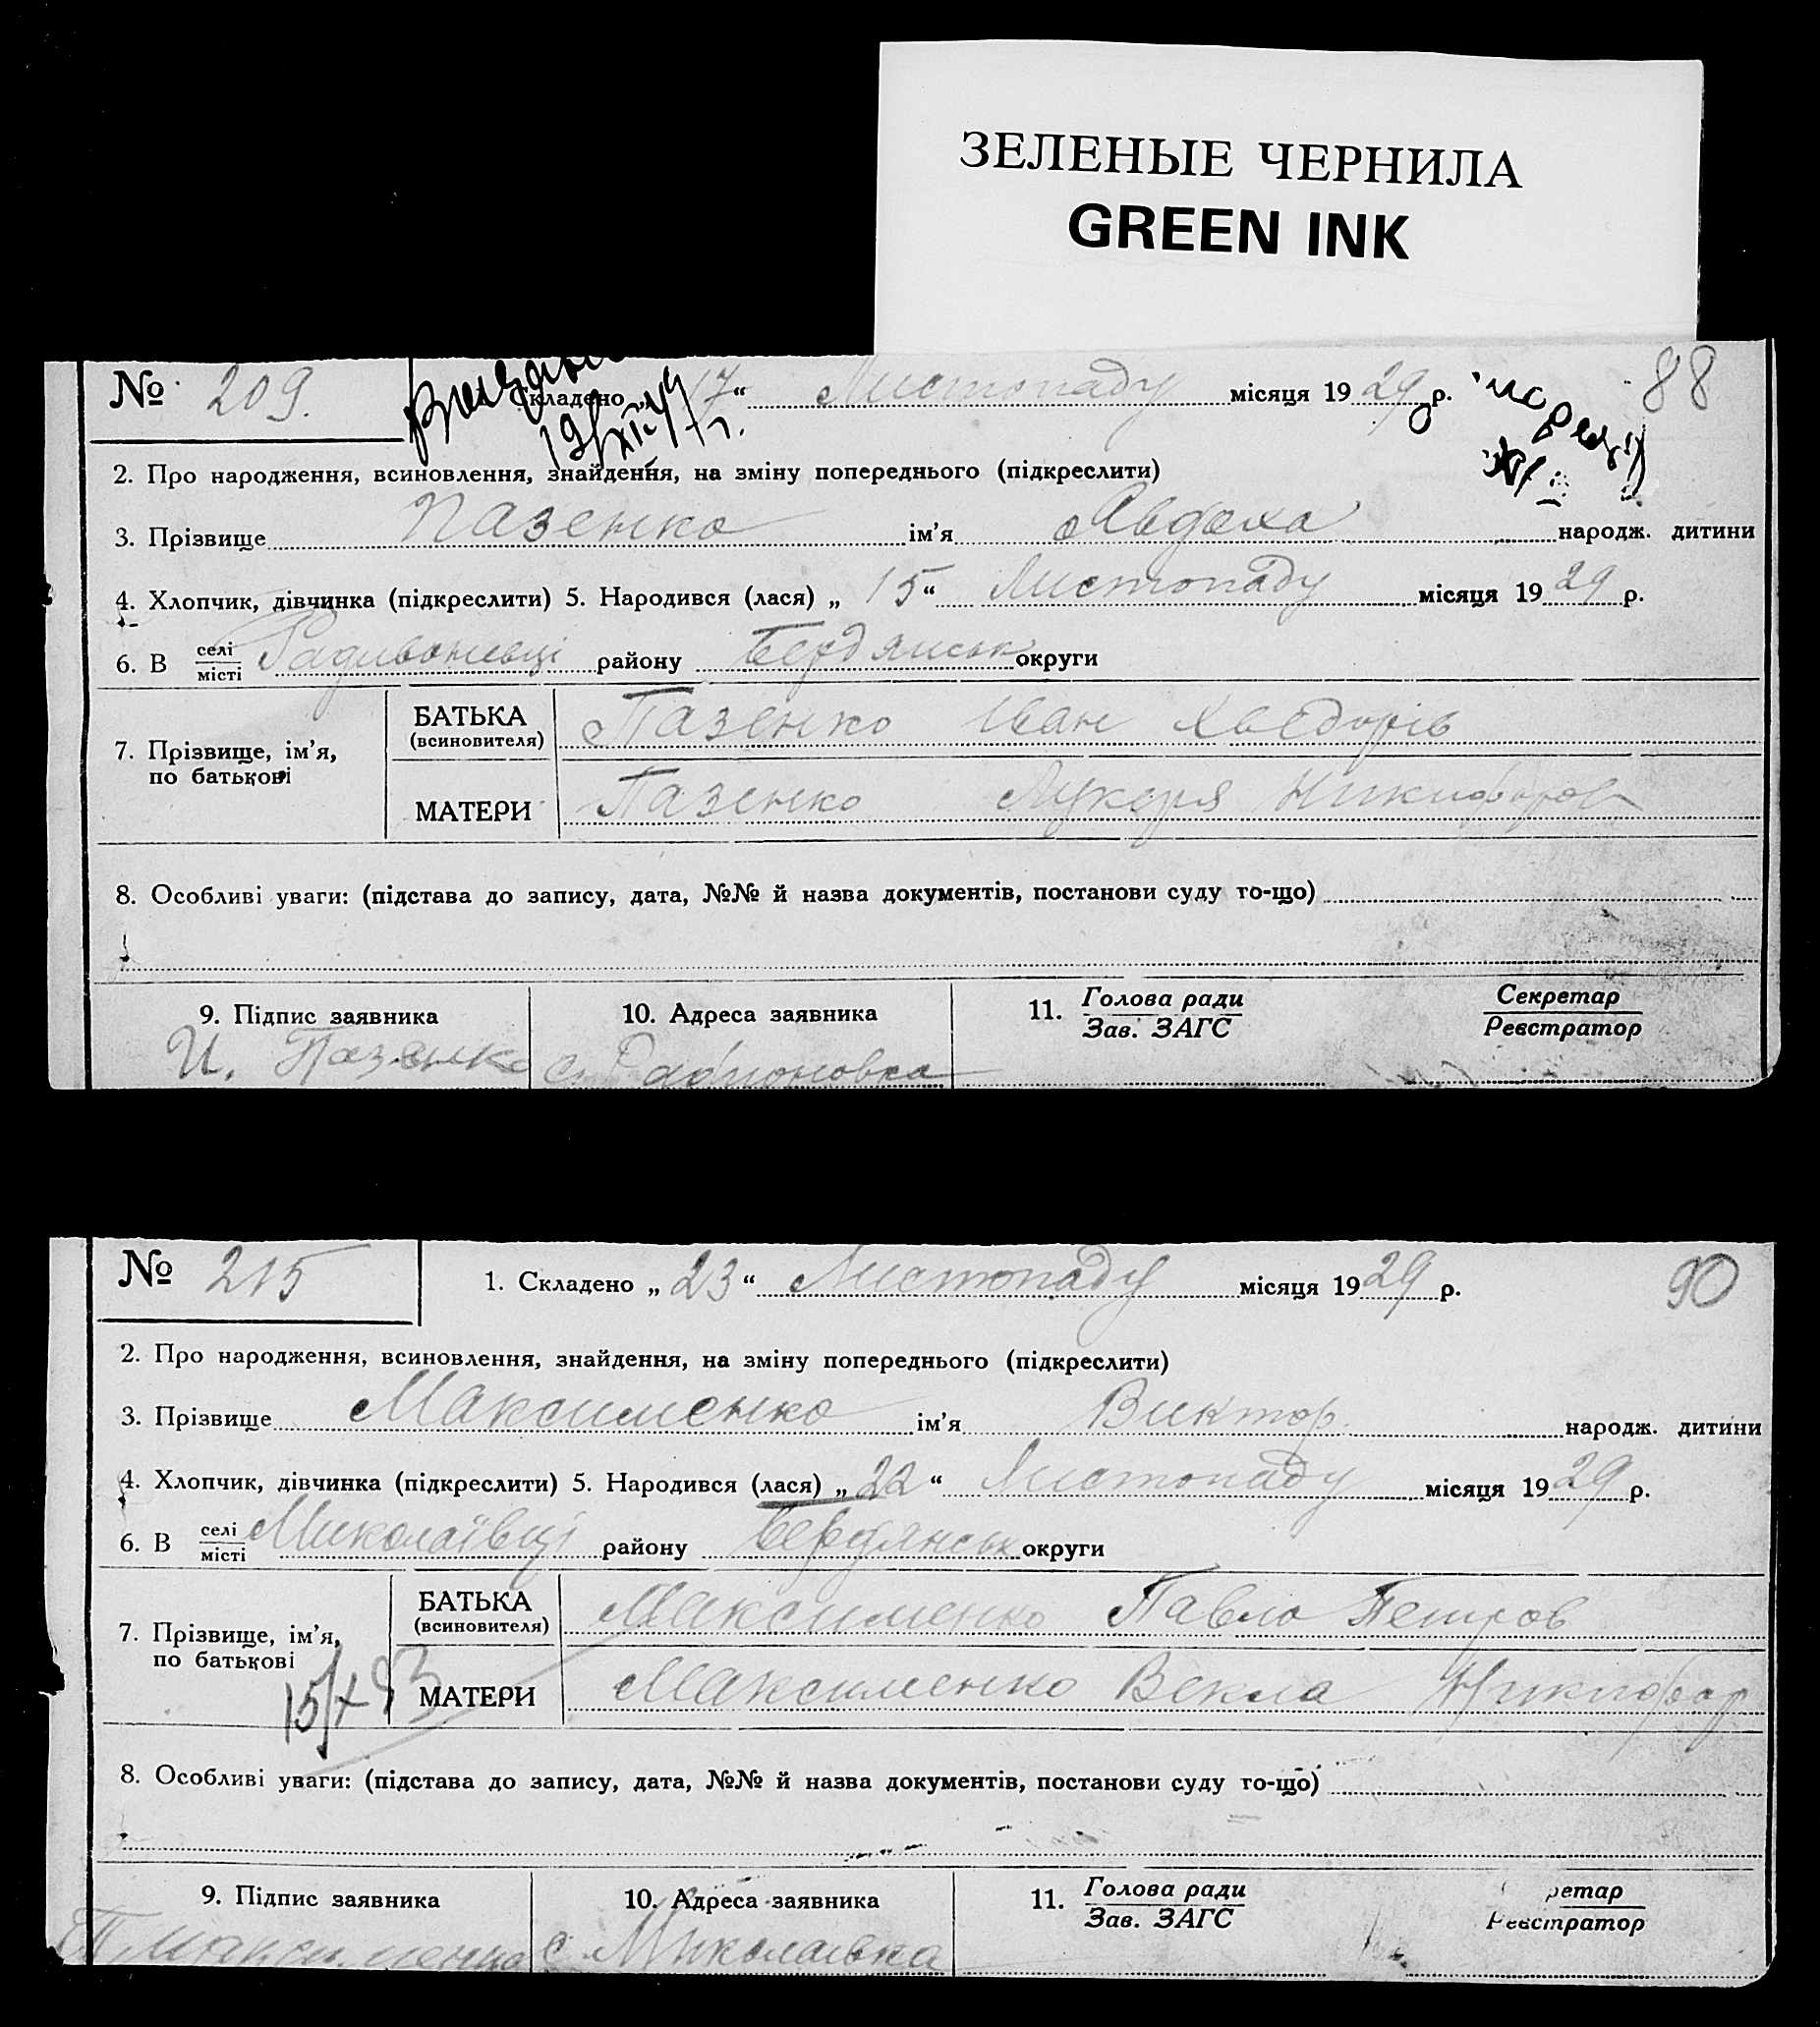 ЗЕЛЕНЫЕ ЧЕРНИЛА
GREEN INK
№ 209. Складено „17“ Листопаду місяця 1929 р. 88
19/XII-47 г.
2. Про народження, всиновлення, знайдення, на зміну попереднього (підкреслити)
3. Прізвище Пазенко ім’я Авдоха народж. дитини
4. Хлопчик, дівчинка (підкреслити) 5. Народився (лася) „15“ Листопаду місяця 1929 р.
6. В селі/місті Радивонівці району Бердянськ округи
7. Прізвище, ім’я, по батькові
БАТЬКА (всиновителя) Пазенко Іван Хведорів
МАТЕРИ Пазенко Лукеря Никифоров
8. Особливі уваги: (підстава до запису, дата, №№ й назва документів, постанови суду то-що)
9. Підпис заявника 10. Адреса заявника 11. Голова ради/Зав. ЗАГС Секретар/Реєстратор
И. Пазенко с. Радионовка
№ 215 1. Складено „23“ Листопаду місяця 1929 р. 90
2. Про народження, всиновлення, знайдення, на зміну попереднього (підкреслити)
3. Прізвище Максименко ім’я Виктор народж. дитини
4. Хлопчик, дівчинка (підкреслити) 5. Народився (лася) „22“ Листопаду місяця 1929 р.
6. В селі/місті Миколаївці району Бердянськ округи
7. Прізвище, ім’я, по батькові
БАТЬКА (всиновителя) Максименко Павло Петров
МАТЕРИ Максименко Векла Никифор
8. Особливі уваги: (підстава до запису, дата, №№ й назва документів, постанови суду то-що)
9. Підпис заявника 10. Адреса заявника 11. Голова ради/Зав. ЗАГС ретар/Реєстратор
П Максименко с Миколаівка